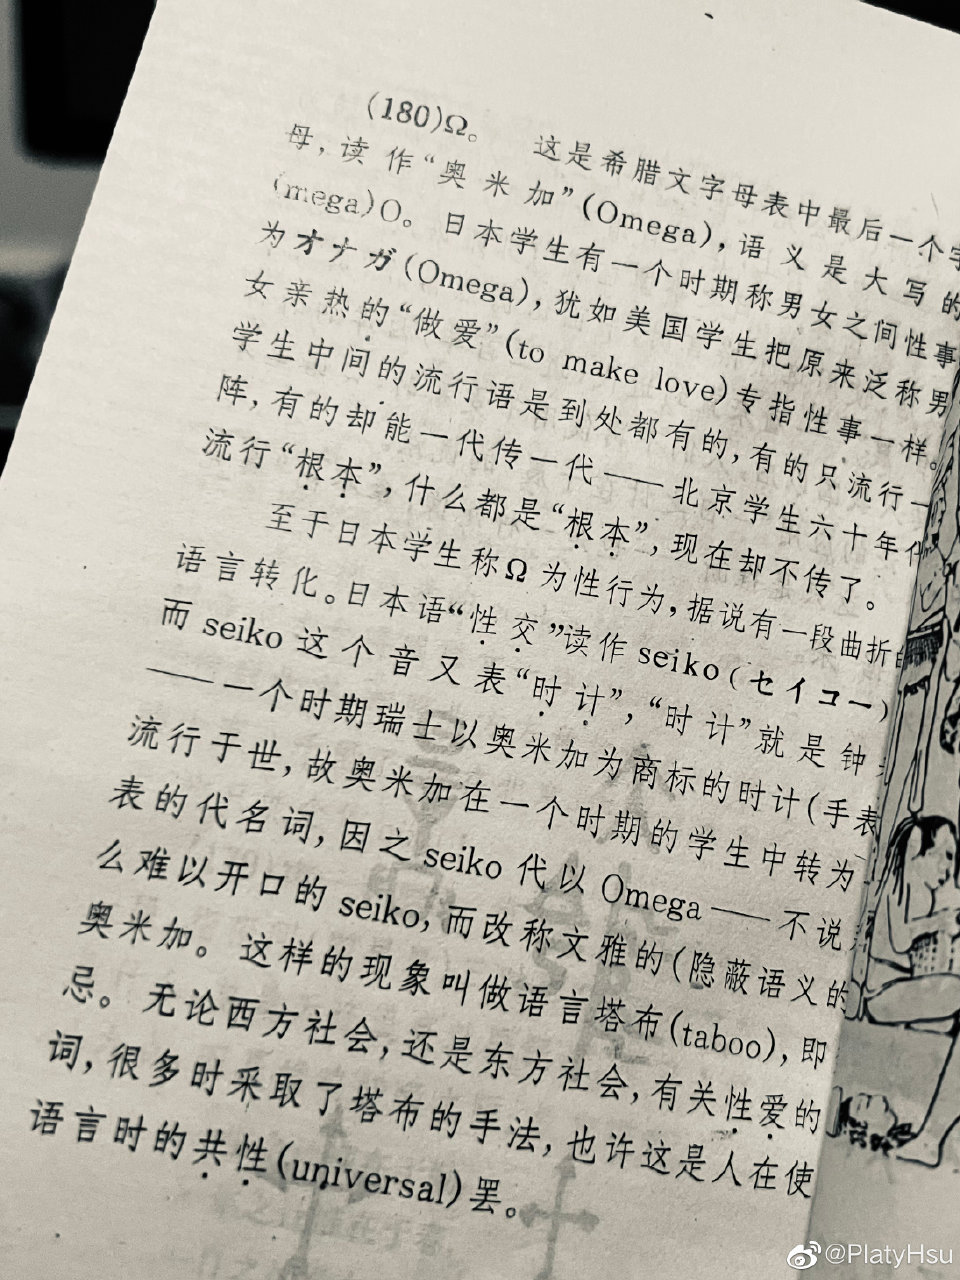 (180)Ω。 这是希腊文字母表中最后一个字
母,读作“奥米加”(Omega),语义是大写的
(mega)O。日本学生有一个时期称男女之间性事
为オナガ(Omega),犹如美国学生把原来泛称男
女亲热的“做爱”(to make love)专指性事一样。
学生中间的流行语是到处都有的,有的只流行一
阵,有的却能一代传一代——北京学生六十年代
流行“根本”,什么都是“根本”,现在却不传了。
至于日本学生称Ω为性行为,据说有一段曲折的
语言转化。日本语“性交”读作seiko(セイコー)
而seiko这个音又表“时计”,“时计”就是钟
——一个时期瑞士以奥米加为商标的时计(手表
流行于世,故奥米加在一个时期的学生中转为
表的代名词,因之seiko代以Omega——不说
么难以开口的seiko,而改称文雅的(隐蔽语义的
奥米加。这样的现象叫做语言塔布(taboo),即
忌。无论西方社会,还是东方社会,有关性爱的
词,很多时采取了塔布的手法,也许这是人在使
语言时的共性(universal)罢。
@PlatyHsu